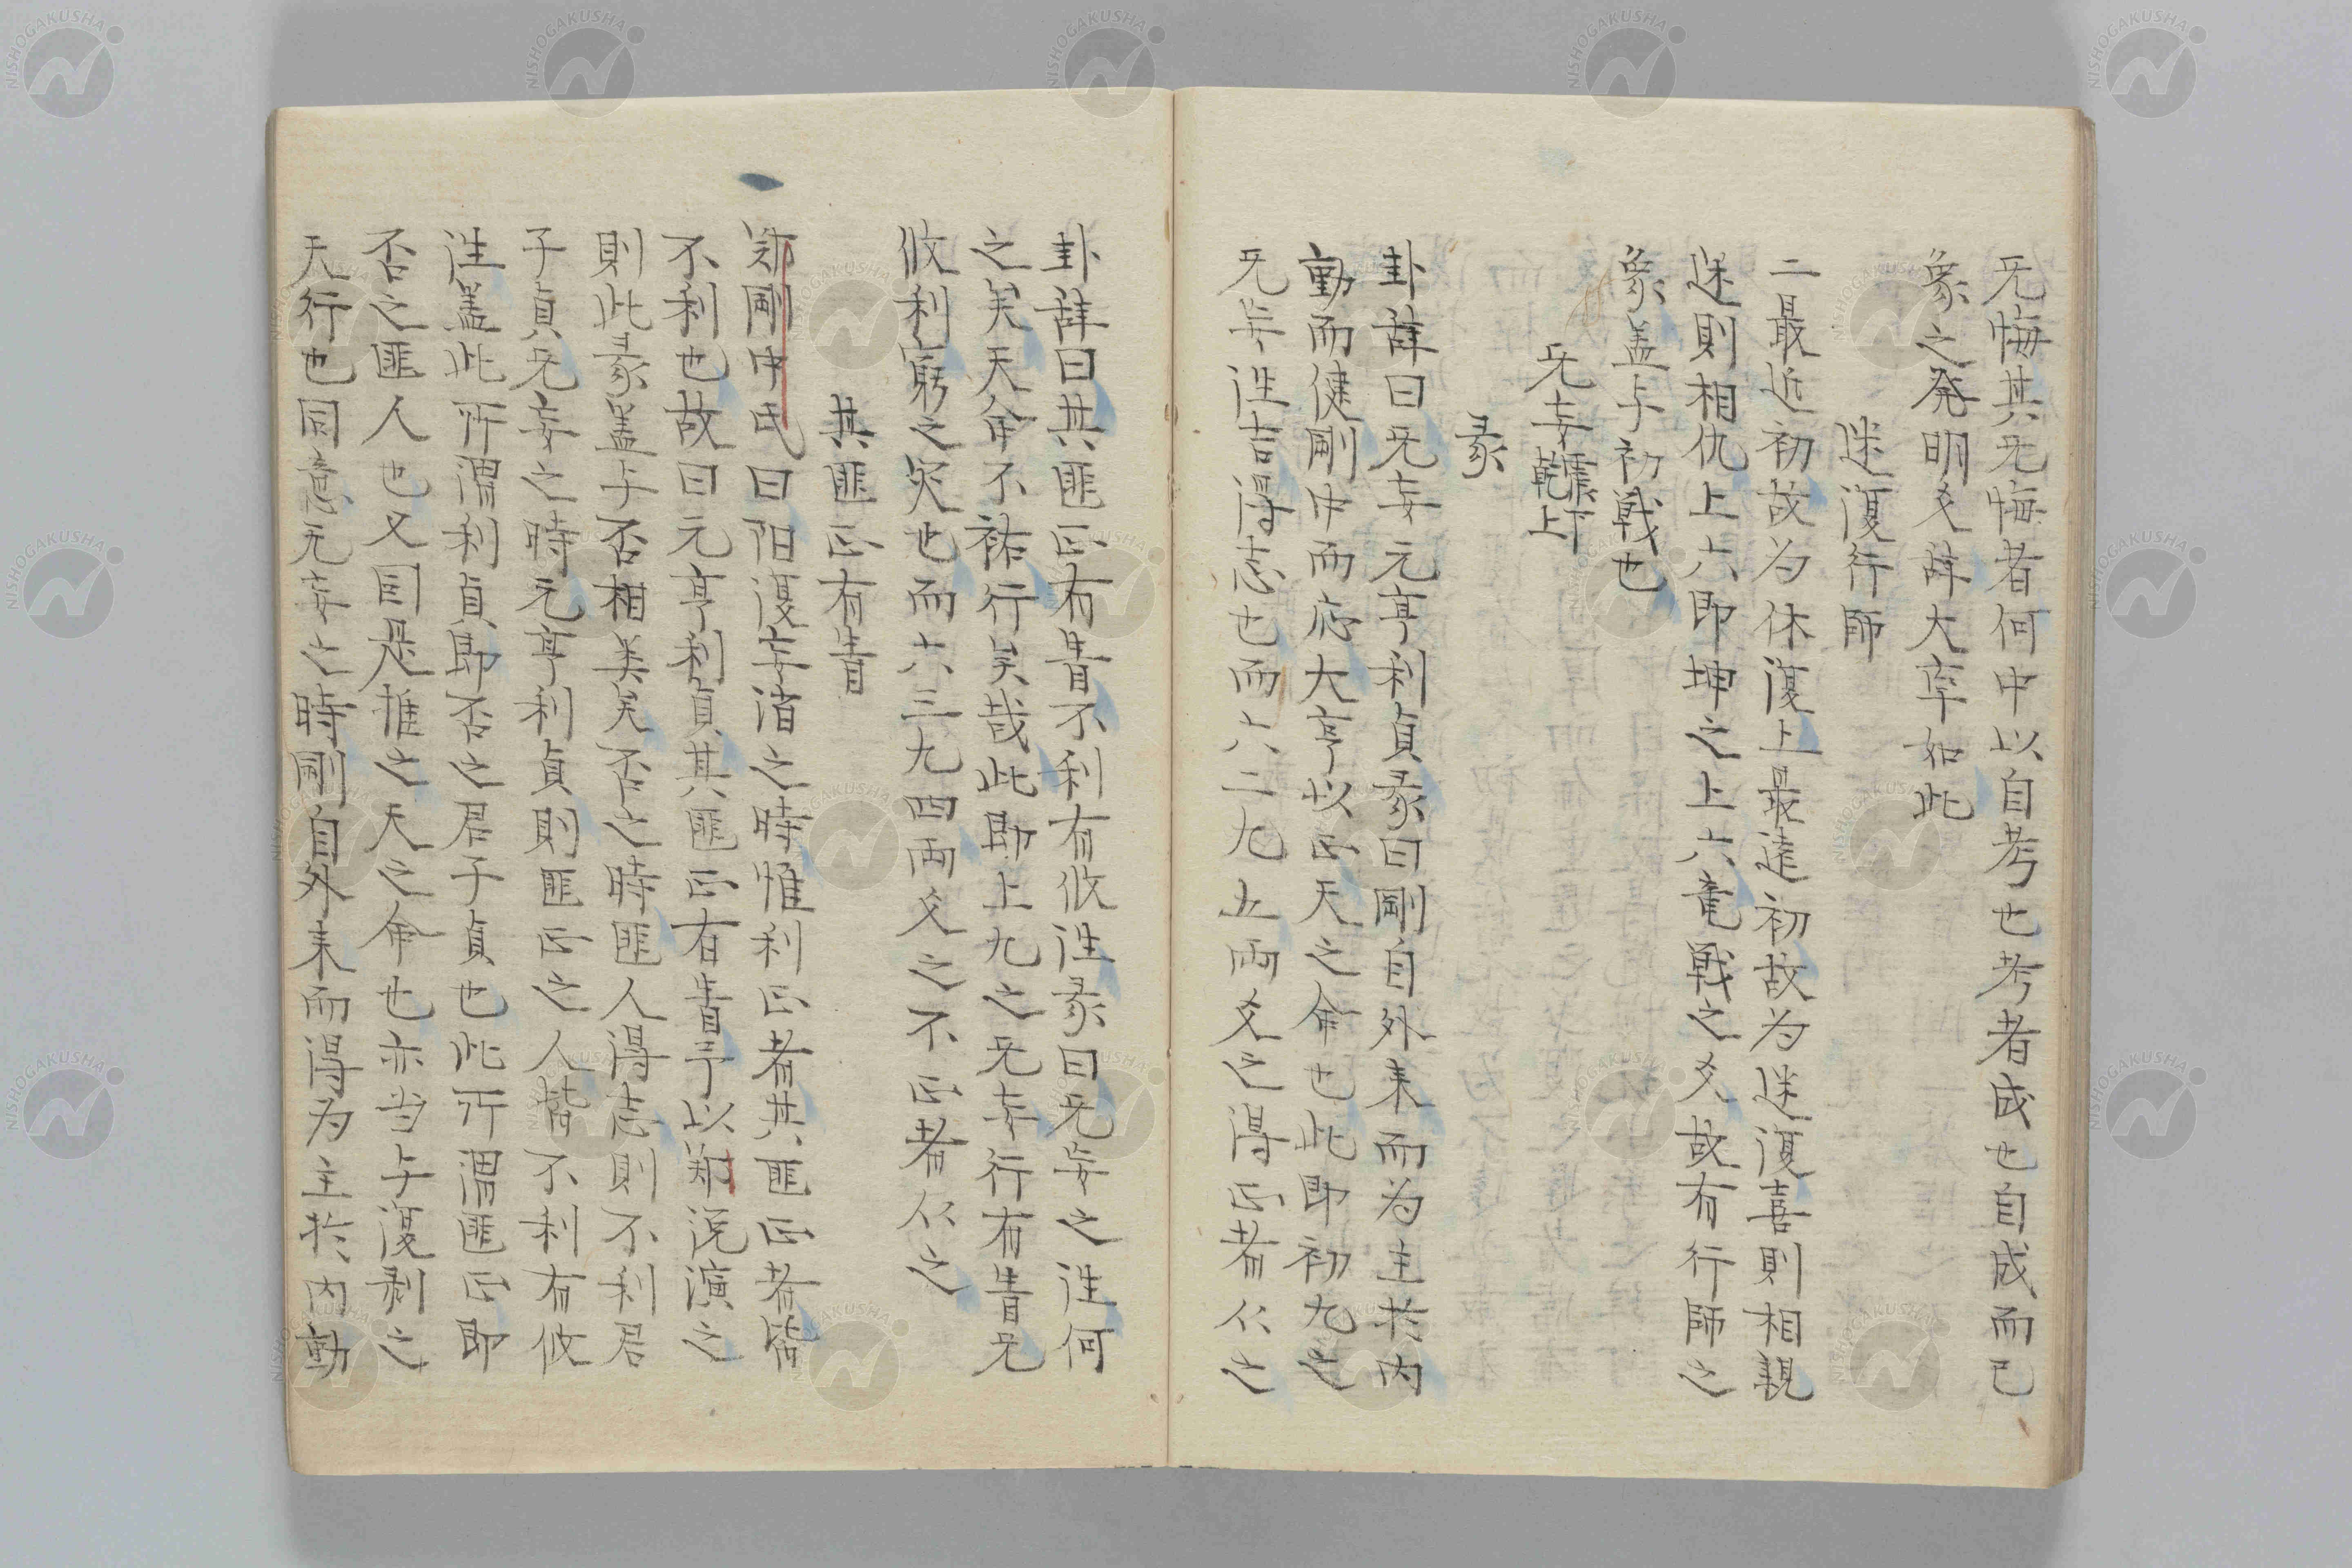 无悔其无悔者何中以自考也考者成也自成而已
象之発明爻辞大率如此
迷復行師
二最近初故为休復上最遠初故为迷復喜則相親
迷則相仇上六即坤之上六竜戦之爻故有行師之
象盖与初戦也
无妄震下乾上
彖
卦辞曰无妄元亨利貞彖曰剛自外来而为主於内
動而健剛中而応大亨以正天之命也此即初九之
无妄往吉得志也而六二九五両爻之得正者从之
卦辞曰其匪正有眚不利有攸往彖曰无妄之往何
之矣天命不祐行矣哉此即上九之无妄行有眚无
攸利窮之災也而六三九四両爻之不正者从之
其匪正有眚
鄭剛中氏曰阳復妄消之時惟利正者其匪正者皆
不利也故曰元亨利貞其匪正有眚予以鄭说演之
則此彖盖与否相类矣否之時匪人得志則不利君
子貞无妄之時元亨利貞則匪正之人皆不利有攸
往盖此所謂利貞即否之君子貞也此所謂匪正即
否之匪人也又因是推之天之命也亦当与復剥之
天行也同意无妄之時剛自外来而得为主於内動
NISHOGAKUSHA